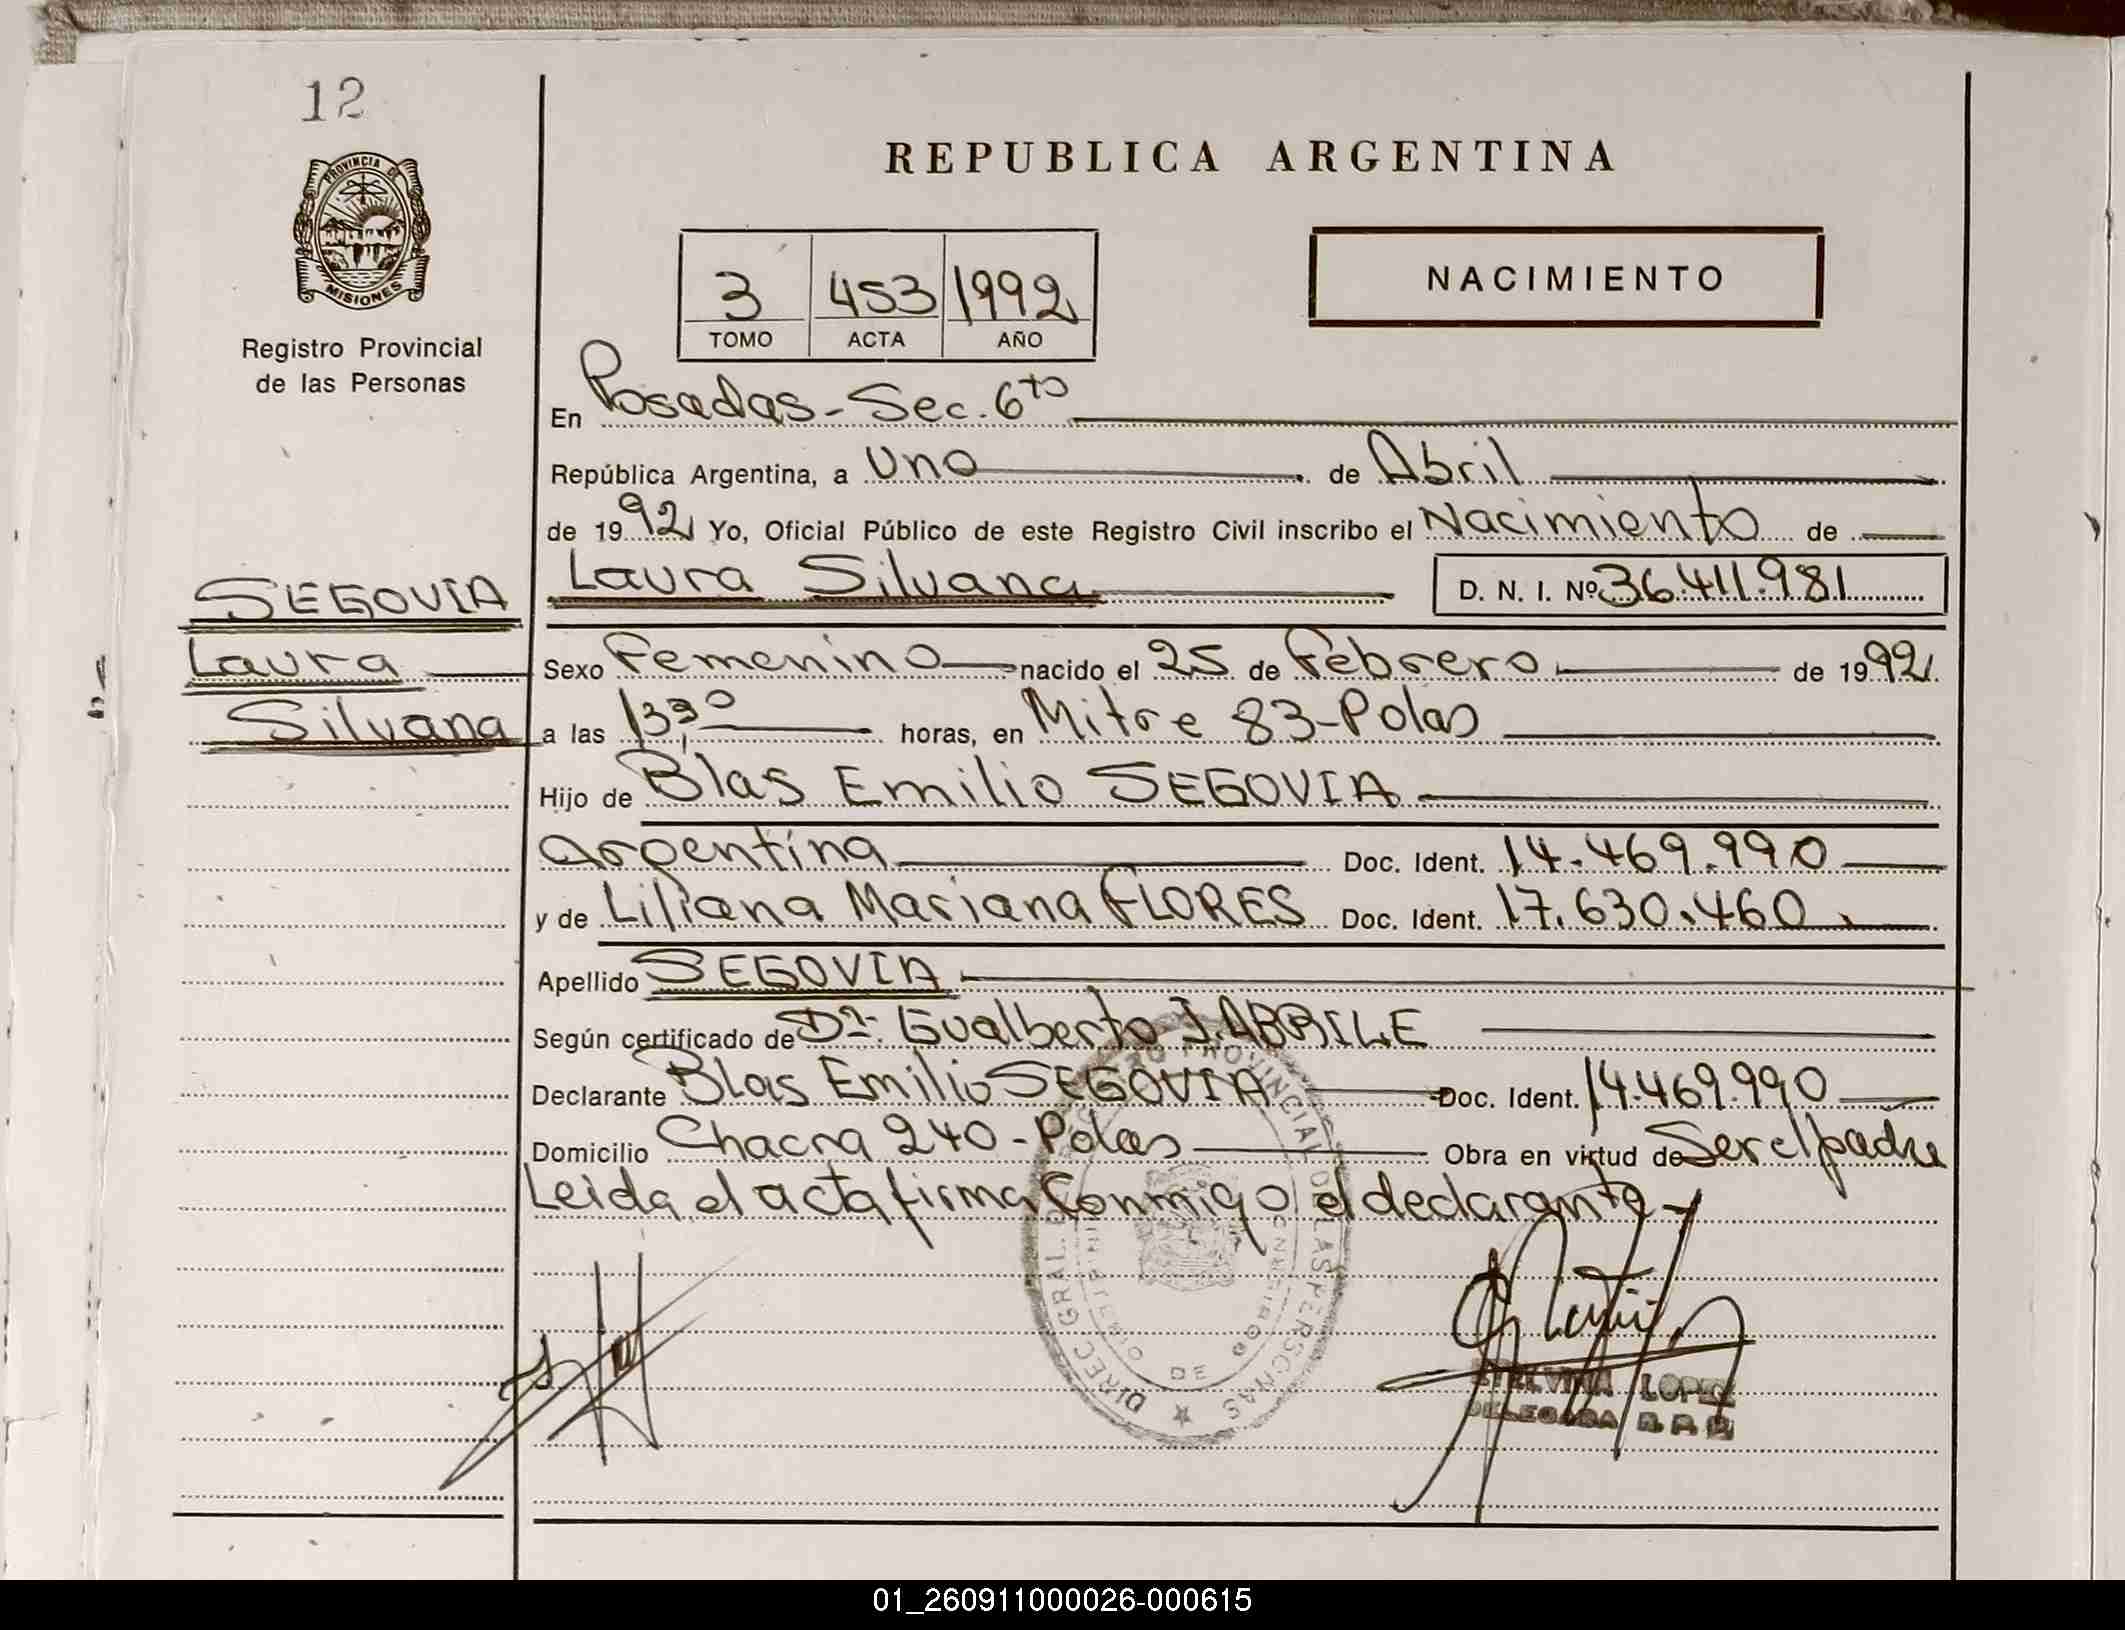 12
PROVINCIA DE
MISIONES
Registro Provincial
de las Personas
SEGOVIA
Laura
Silvana
REPUBLICA ARGENTINA
3 453 1992
TOMO ACTA AÑO
NACIMIENTO
En Posadas - Sec. 6ta
República Argentina, a Uno de Abril
de 1992 Yo, Oficial Público de este Registro Civil inscribo el Nacimiento de
Laura Silvana D. N. I. Nº 36.411.981
Sexo Femenino nacido el 25 de Febrero de 1992
a las 13,30 horas, en Mitre 83 - Pdas
Hijo de Blas Emilio SEGOVIA
Argentina Doc. Ident. 14.469.990
y de Liliana Mariana FLORES Doc. Ident. 17.630.460
Apellido SEGOVIA
Según certificado de Dr. Gualberto J. ABRILE
Declarante Blas Emilio SEGOVIA Doc. Ident. 14.469.990
Domicilio Chacra 240 - Pdas Obra en virtud de Ser el padre
Leida el acta firma Conmigo el declarante
DIREC. GRAL. PROVINCIAL DE LAS PERSONAS
LOPEZ
DELEGADA R. P. P.
01_260911000026-000615